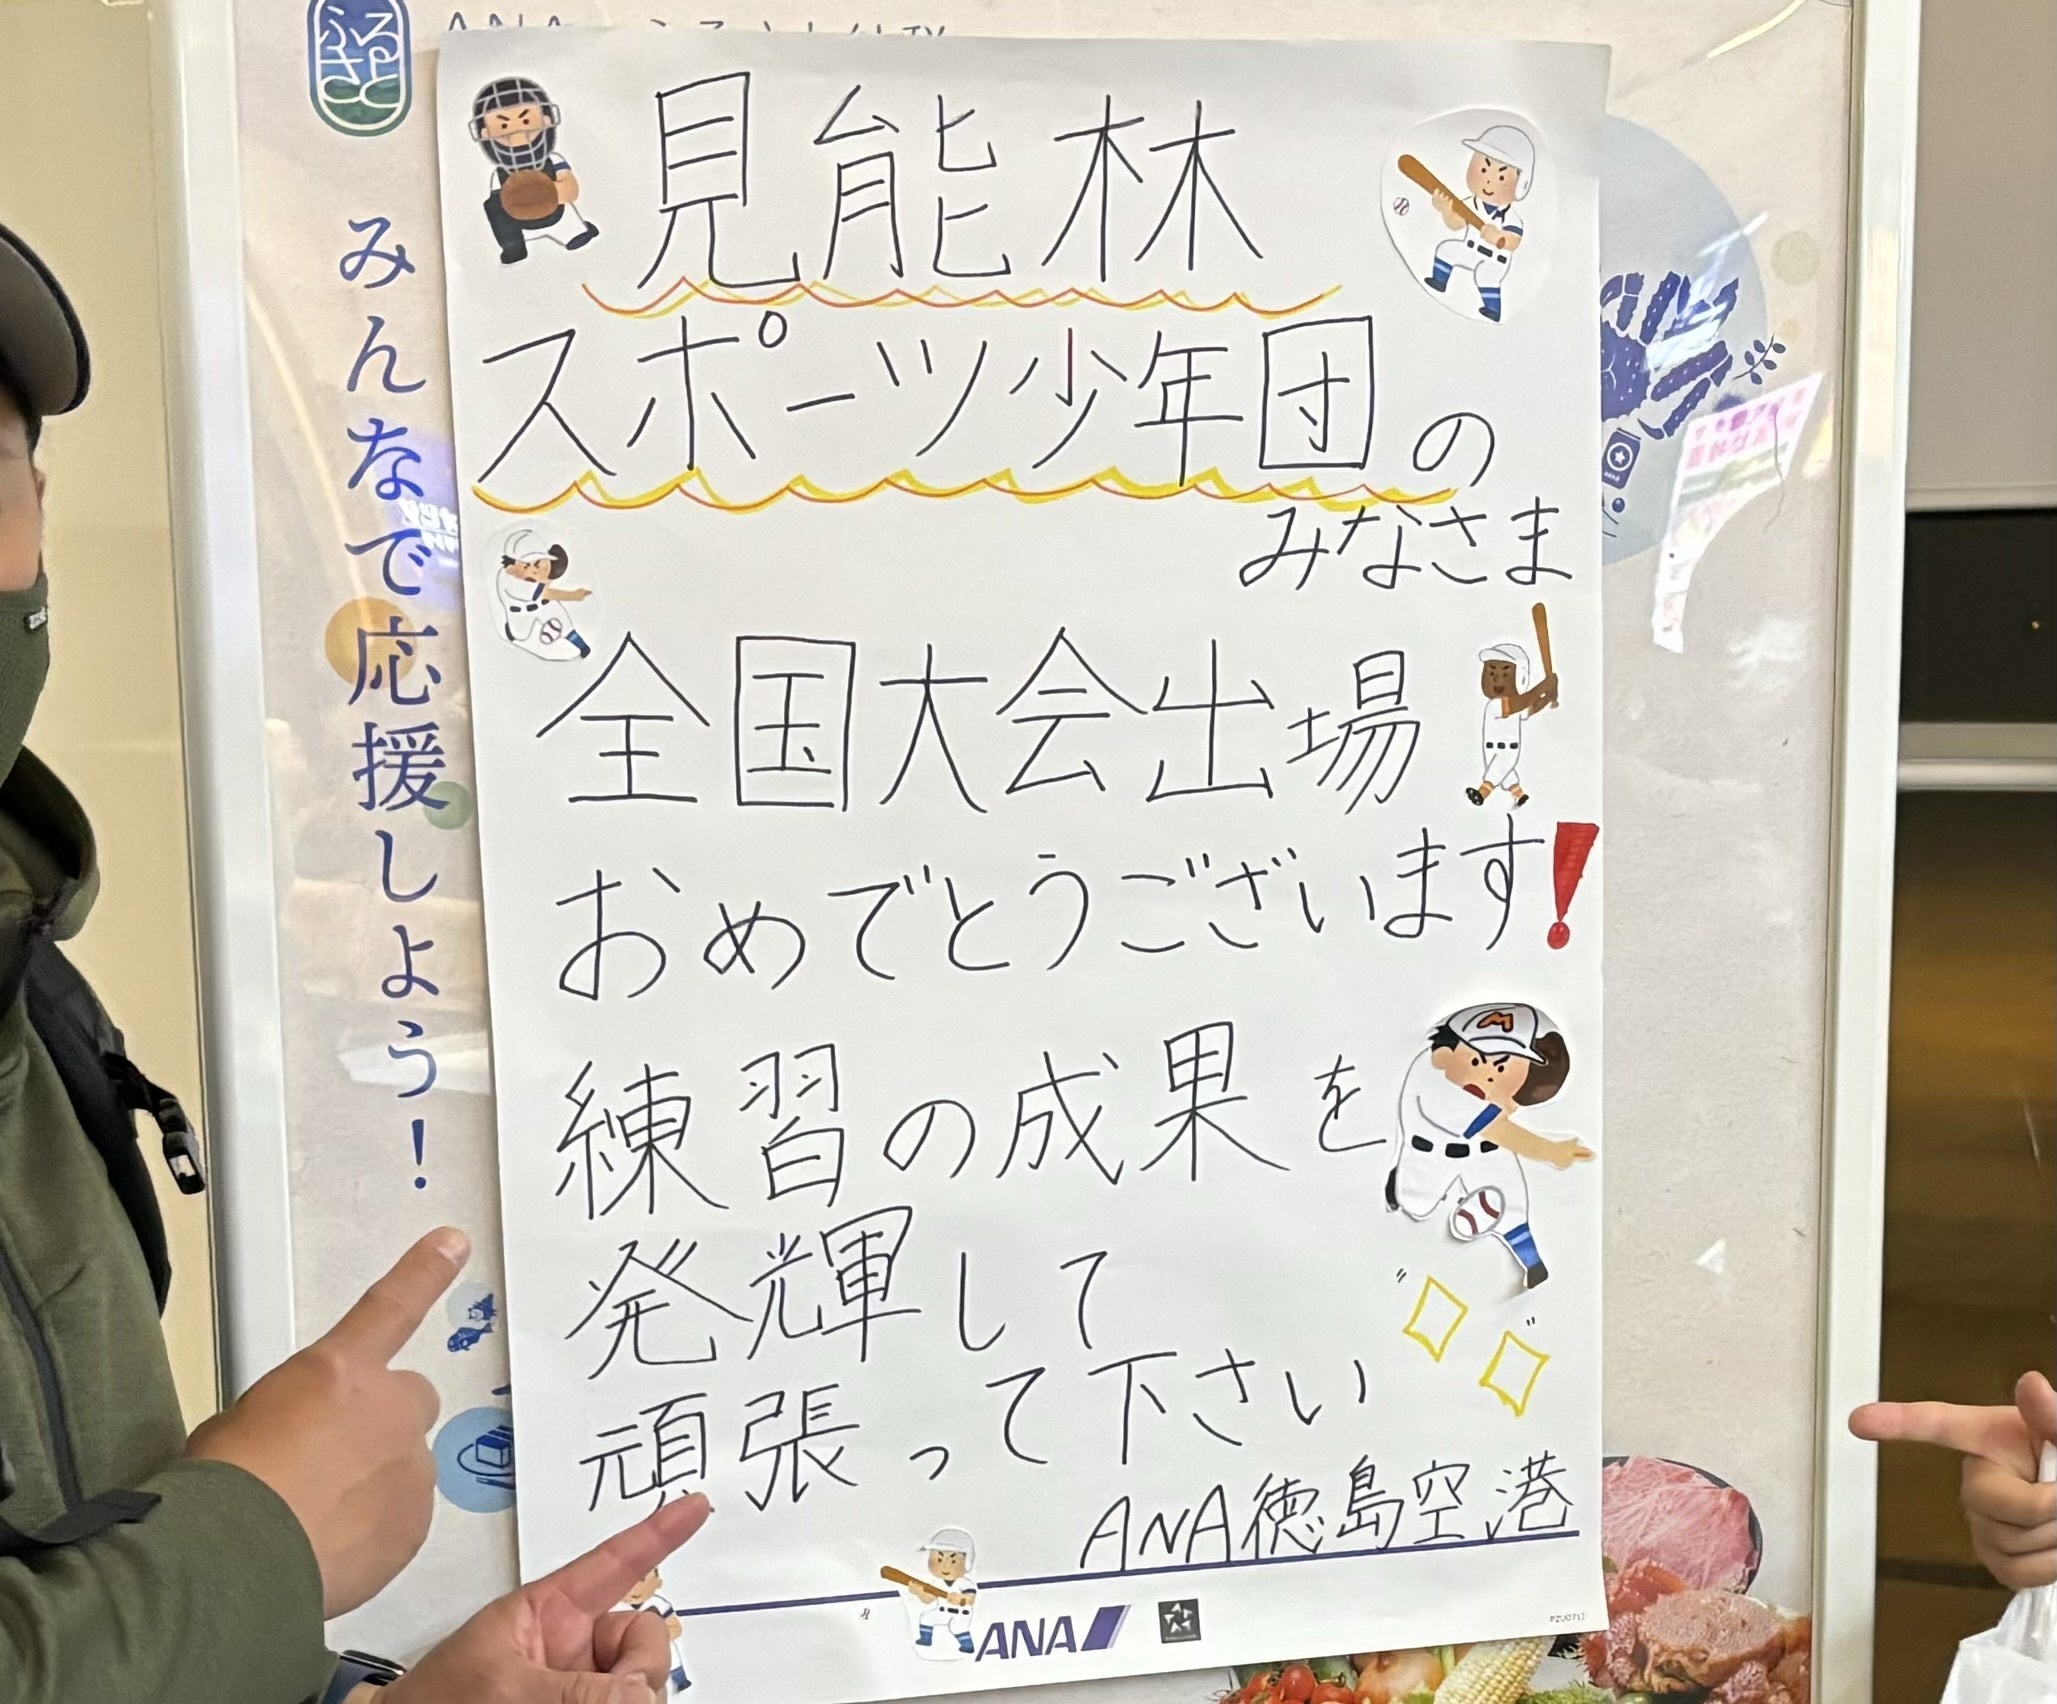 ふるさと
みんなで応援しよう!
見能林
スポーツ少年団の
みなさま
全国大会出場
おめでとうございます!
練習の成果を
発輝して
頑張って下さい
ANA徳島空港
ANA
PZU0717
M